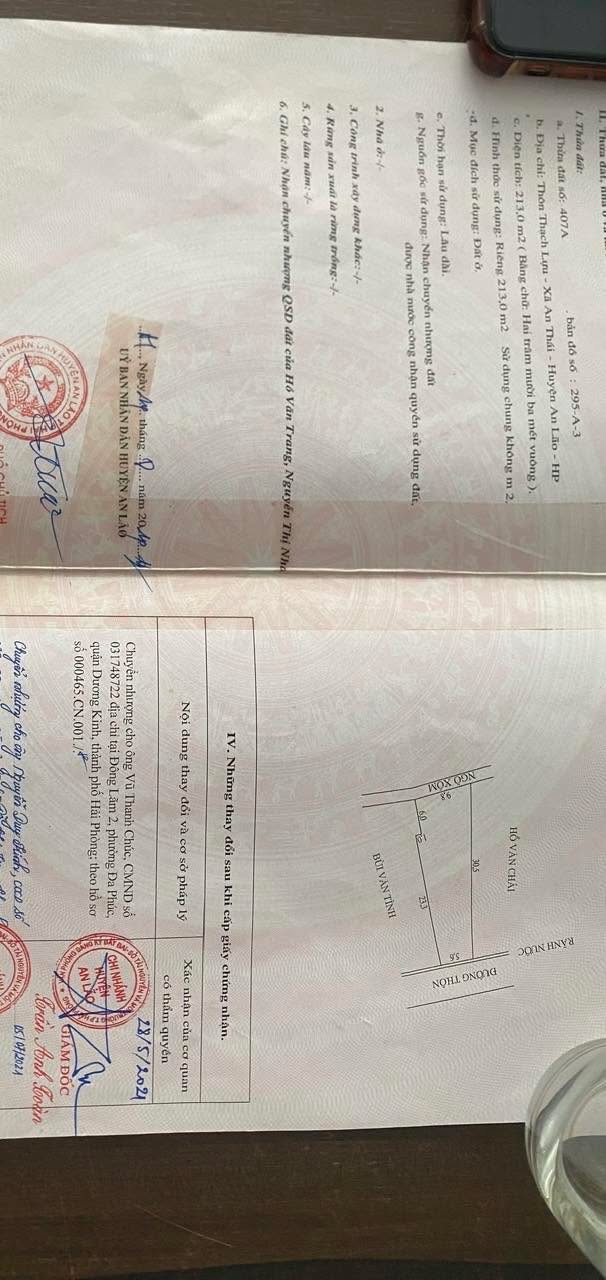 II. Thửa đất, nhà ở và
1. Thửa đất:
a. Thửa đất số: 407A . bản đồ số : 295-A-3
b. Địa chỉ: Thôn Thạch Lựu - Xã An Thái - Huyện An Lão - HP
c. Diện tích: 213,0 m2 ( Bằng chữ: Hai trăm mười ba mét vuông ).
d. Hình thức sử dụng: Riêng 213,0 m2 Sử dụng chung không m 2.
đ. Mục đích sử dụng: Đất ở.
e. Thời hạn sử dụng: Lâu dài.
g. Nguồn gốc sử dụng: Nhận chuyển nhượng đất
được nhà nước công nhận quyền sử dụng đất.
2. Nhà ở:-/-
3. Công trình xây dựng khác:-/-
4. Rừng sản xuất là rừng trồng:-/-
5. Cây lâu năm: -/-
6. Ghi chú: Nhận chuyển nhượng QSD đất của Hồ Văn Trang, Nguyễn Thị Nha
Ngày tháng năm 20
UỶ BAN NHÂN DÂN HUYỆN AN LÃO
PHÓ CHỦ TỊCH
HỒ VĂN CHẢI
RÃNH NƯỚC
NGÕ XÓM
9.8
30,5
5,6
6,0
23,3
ĐƯỜNG THÔN
BÙI VĂN TÌNH
IV. Những thay đổi sau khi cấp giấy chứng nhận.
Nội dung thay đổi và cơ sở pháp lý
Xác nhận của cơ quan
có thẩm quyền
Chuyển nhượng cho ông Vũ Thanh Chúc, CMND số
031748722 địa chỉ tại Đồng Lãm 2, phường Đa Phúc,
quận Dương Kinh, thành phố Hải Phòng; theo hồ sơ
số 000465.CN.001./.
28/5/2021
CHI NHÁNH
HUYỆN
AN LÃO
GIÁM ĐỐC
Trần Anh Toàn
Chuyển nhượng cho ông Nguyễn Duy Khính, CCCD số
05/07/2021